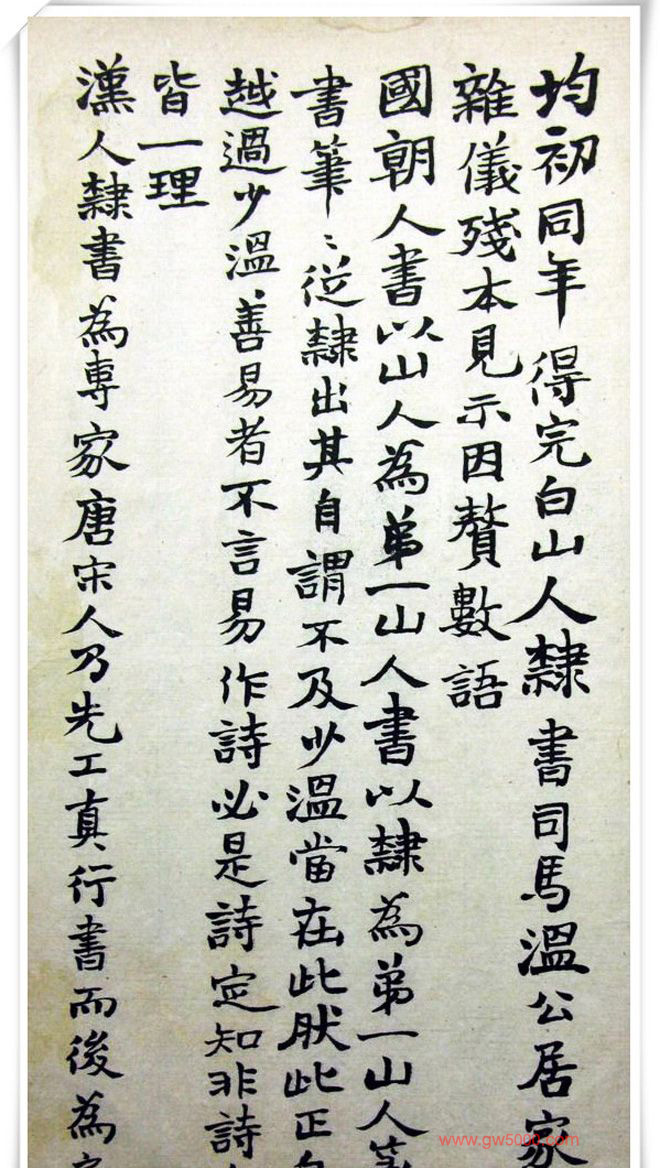 均初同年得完白山人隸書司馬溫公居家
雜儀殘本見示因贅數語
國朝人書以山人為弟一山人書以隸為弟一山人篆
書筆〻從隸出其自謂不及少溫當在此肰此正自
越過少溫善易者不言易作詩必是詩定知非詩
皆一理
漢人隸書為專家唐宋人乃先工真行書而後為
www.gw5000.com